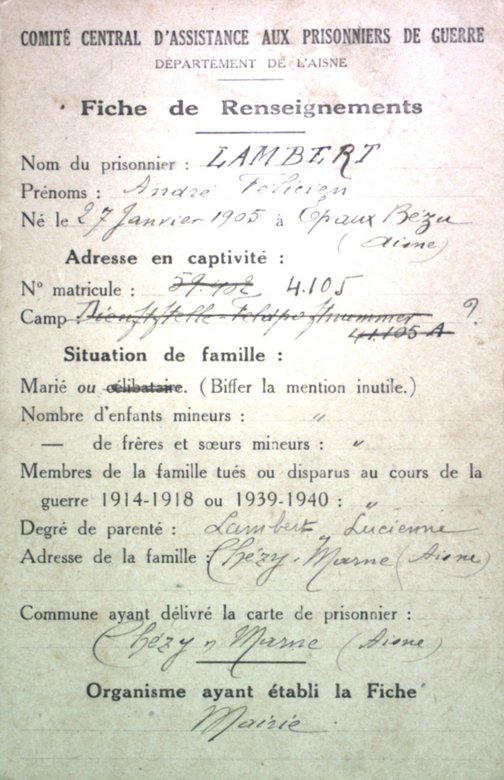 COMITÉ CENTRAL D'ASSISTANCE AUX PRISONNIERS DE GUERRE
DÉPARTEMENT DE L'AISNE
Fiche de Renseignements
Nom du prisonnier : LAMBERT
Prénoms : André Félicien
Né le 27 Janvier 1905 à Epaux Bézu
(Aisne)
Adresse en captivité :
N° matricule : 59.402 4.105
Camp : Dienststelle Feldpostnummer ?
41.105 A
Situation de famille :
Marié ou célibataire. (Biffer la mention inutile.)
Nombre d'enfants mineurs : "
— de frères et sœurs mineurs : "
Membres de la famille tués ou disparus au cours de la
guerre 1914-1918 ou 1939-1940 : "
Degré de parenté : Lambert Lucienne
Adresse de la famille : Chézy s/ Marne (Aisne)
Commune ayant délivré la carte de prisonnier :
Chézy s/ Marne (Aisne)
Organisme ayant établi la Fiche
Mairie